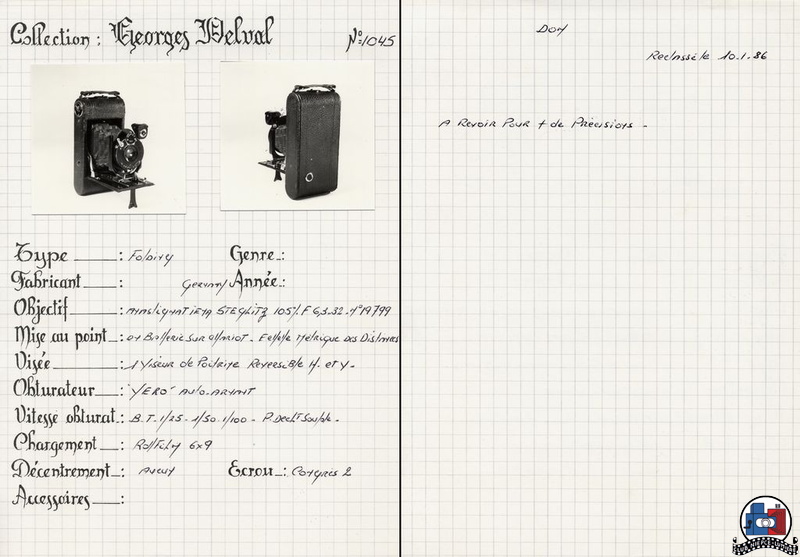 Collection : Georges Delval
N°:1045
Type : Folding Genre :
Fabricant : Germany Année :
Objectif : STEGLITZ 105% F 6,3.32. N°19799
Mise au point : ON Bafferie sur chariot. Echelle Métrique des Distances
Visée : 1 Viseur de Poitrine Reversible H. et V.
Obturateur : "VERO" Auto-Armant
Vitesse obturat : B.T. 1/25 - 1/50. 1/100 - P. Dect Souple.
Chargement : Rollfilm 6x9
Décentrement : Aucun Ecrou : Congres 2
Accessoires :
Don
Reclassé le 10.1.86
A Revoir Pour + de Précisions -